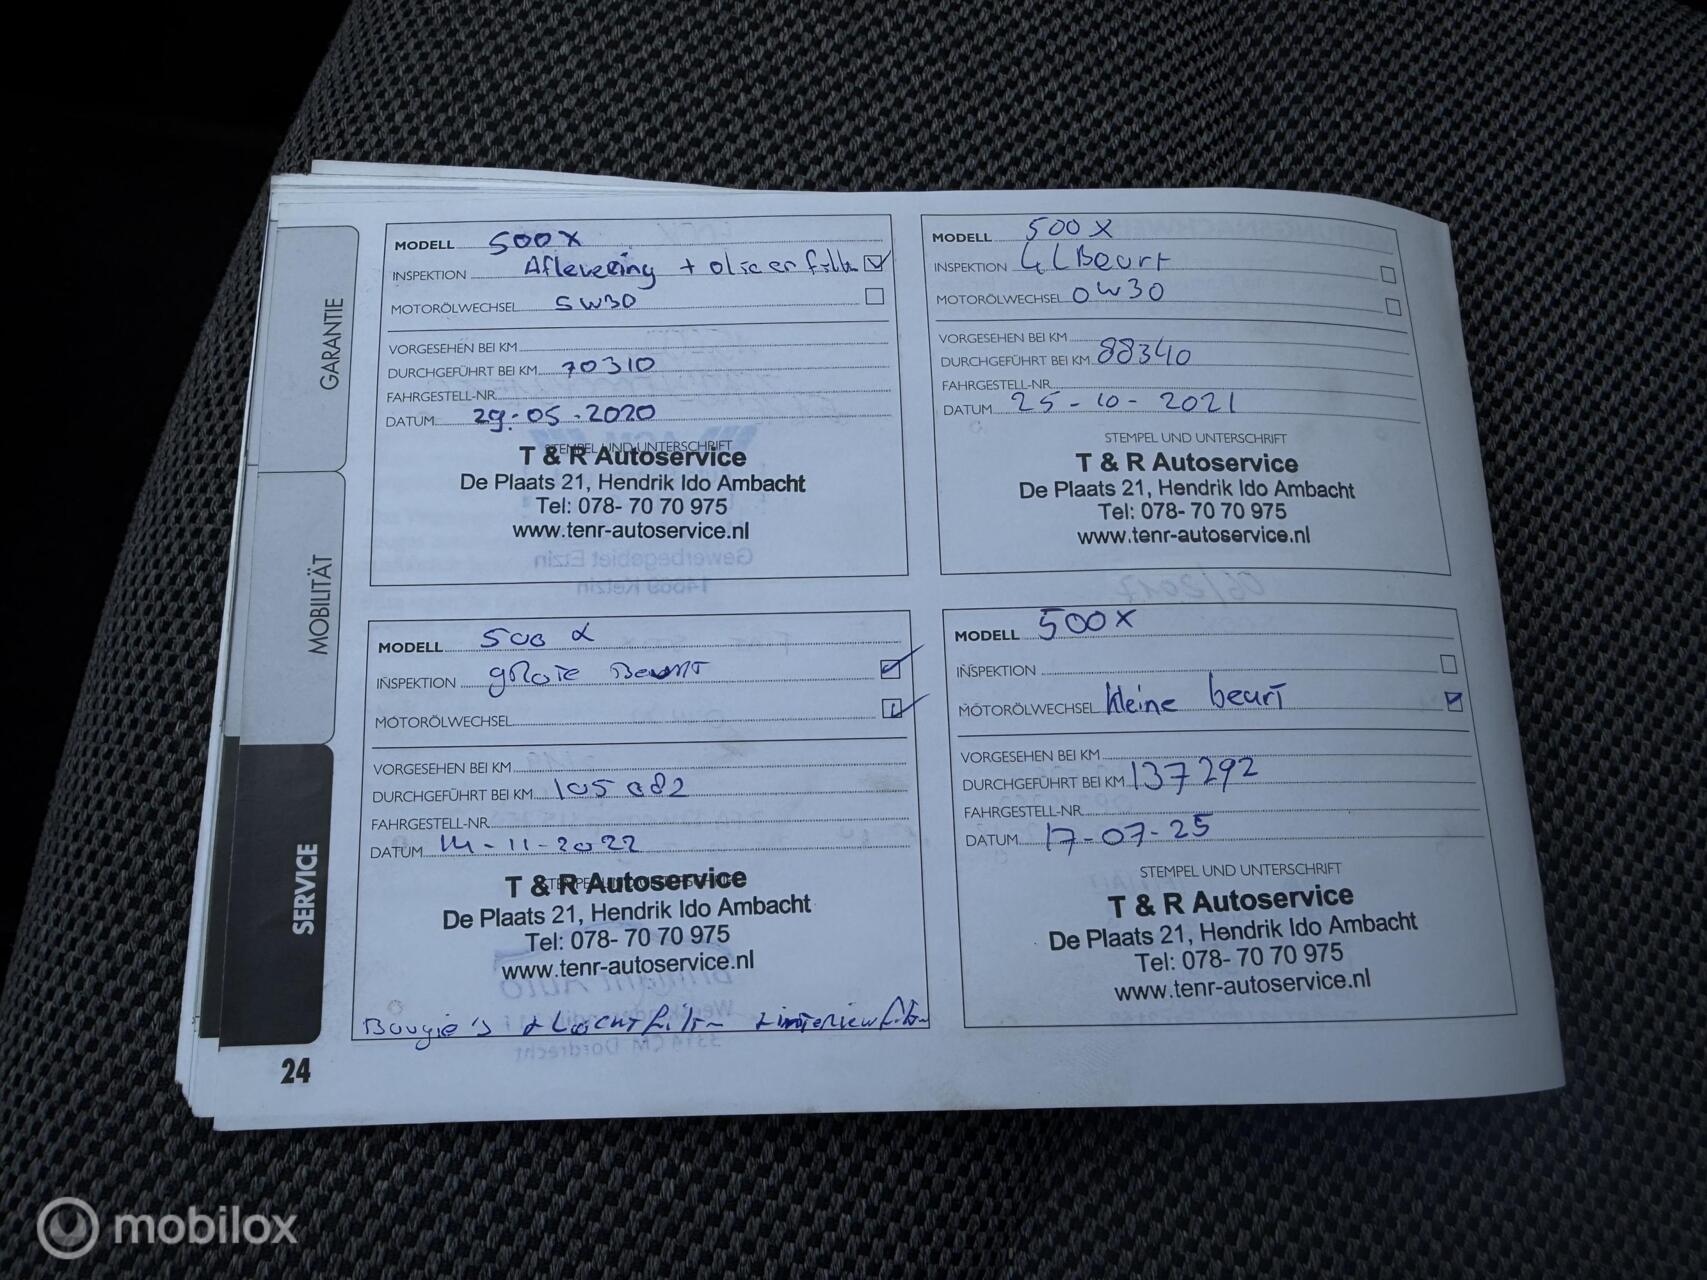 GARANTIE
MOBILITÄT
SERVICE
24
MODELL 500X
INSPEKTION Aflevering + olie en filter
MOTORÖLWECHSEL 5W30
VORGESEHEN BEI KM
DURCHGEFÜHRT BEI KM 70310
FAHRGESTELL-NR.
DATUM 29-05-2020
STEMPEL UND UNTERSCHRIFT
T & R Autoservice
De Plaats 21, Hendrik Ido Ambacht
Tel: 078- 70 70 975
www.tenr-autoservice.nl
MODELL 500X
INSPEKTION Beurt
MOTORÖLWECHSEL 0W30
VORGESEHEN BEI KM
DURCHGEFÜHRT BEI KM 88340
FAHRGESTELL-NR.
DATUM 25-10-2021
STEMPEL UND UNTERSCHRIFT
T & R Autoservice
De Plaats 21, Hendrik Ido Ambacht
Tel: 078- 70 70 975
www.tenr-autoservice.nl
MODELL 500 X
INSPEKTION grote Beurt
MOTORÖLWECHSEL
VORGESEHEN BEI KM
DURCHGEFÜHRT BEI KM 105082
FAHRGESTELL-NR.
DATUM 14-11-2022
STEMPEL UND UNTERSCHRIFT
T & R Autoservice
De Plaats 21, Hendrik Ido Ambacht
Tel: 078- 70 70 975
www.tenr-autoservice.nl
Bougie's + Luchtfilter + interieurfilter
MODELL 500X
INSPEKTION
MOTORÖLWECHSEL kleine beurt
VORGESEHEN BEI KM
DURCHGEFÜHRT BEI KM 137292
FAHRGESTELL-NR.
DATUM 17-07-25
STEMPEL UND UNTERSCHRIFT
T & R Autoservice
De Plaats 21, Hendrik Ido Ambacht
Tel: 078- 70 70 975
www.tenr-autoservice.nl
mobilox